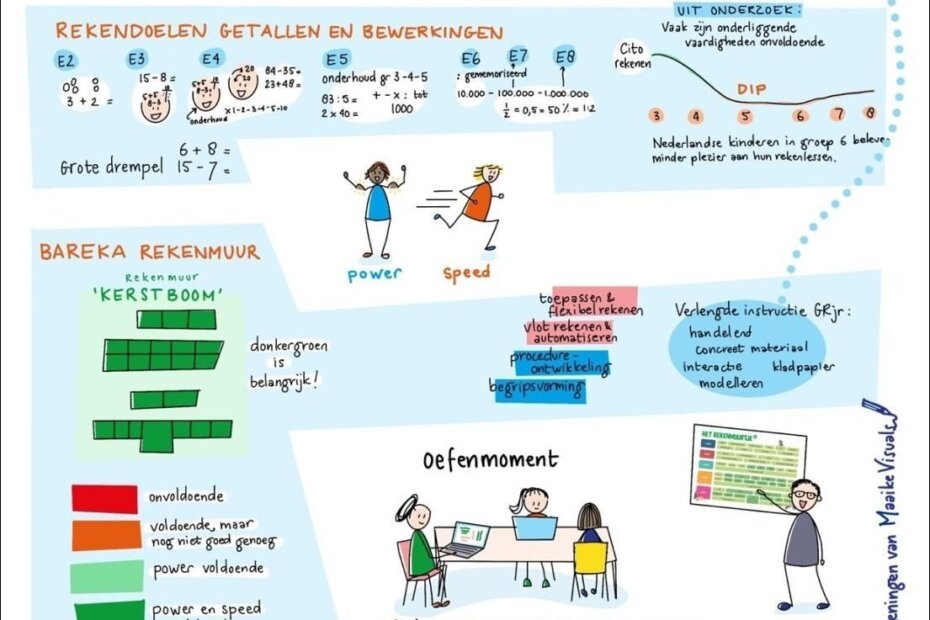 REKENDOELEN GETALLEN EN BEWERKINGEN
E2
3 + 2 =
E3
15-8=
5+5
8-3
E4
84-35=
23+48=
onderhoud
x1-2-3-4-5-10
E5
onderhoud gr 3-4-5
83:5=
2x40=
+ - x : tot
1000
E6 E7 E8
: gememoriseerd
10.000 - 100.000 - 1.000.000
1/2 = 0,5 = 50% = 1:2
Grote drempel
6 + 8 =
15 - 7 =
UIT ONDERZOEK:
Vaak zijn onderliggende
vaardigheden onvoldoende
Cito
rekenen
DIP
3 4 5 6 7 8
Nederlandse kinderen in groep 6 beleve
minder plezier aan hun rekenlessen.
power
speed
BAREKA REKENMUUR
Rekenmuur
'KERSTBOOM'
donkergroen
is
belangrijk!
onvoldoende
voldoende, maar
nog niet goed genoeg
power voldoende
power en speed
toepassen &
flexibel rekenen
vlot rekenen &
automatiseren
procedure-
ontwikkeling
begripsvorming
Verlengde instructie GRjr:
handelend
concreet materiaal
interactie kladpapier
modelleren
Oefenmoment
HET REKENMUURTJE
eningen van Maaike Visuals